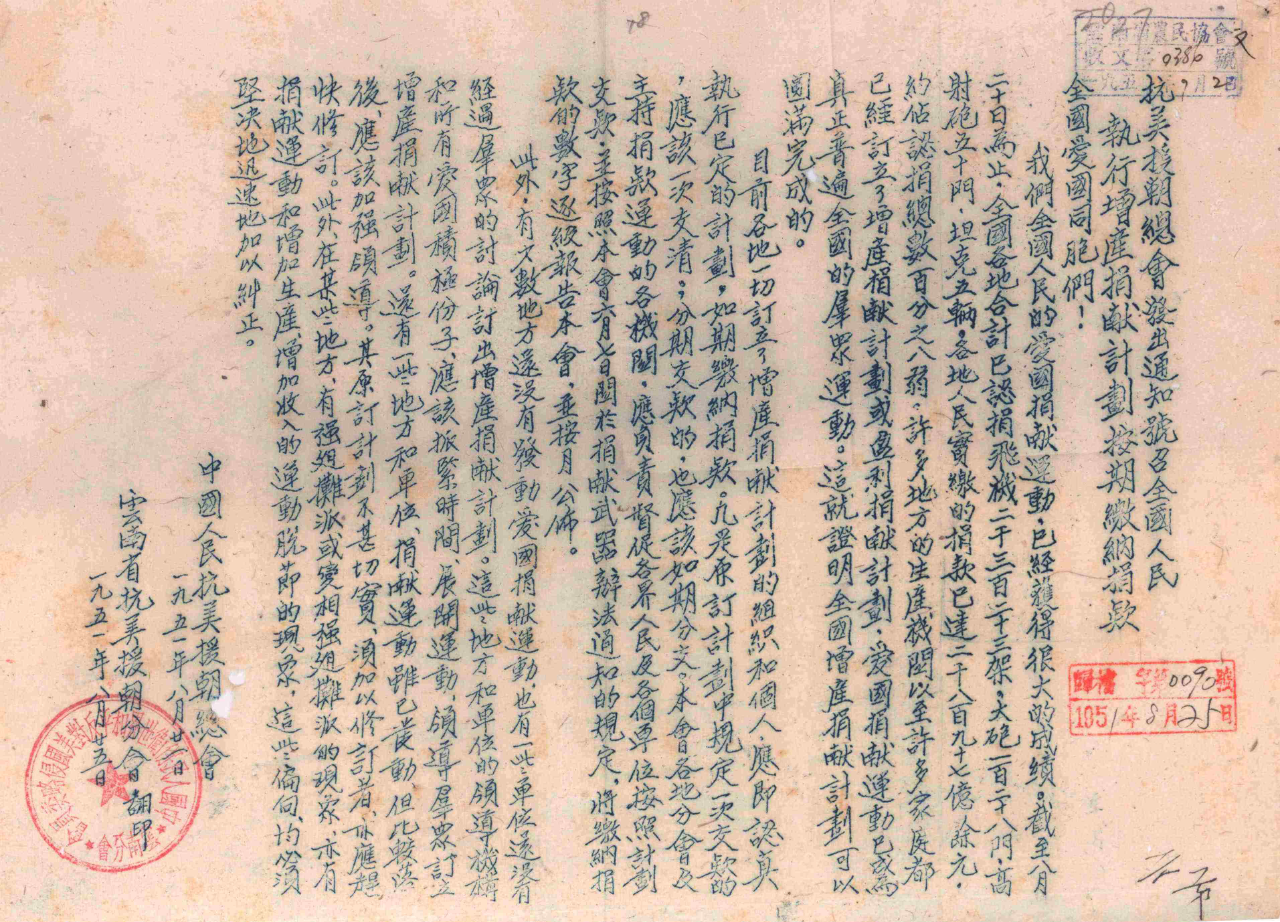 抗美援朝總會發出通知號召全國人民
執行增產捐献計劃按期繳納捐款
全國愛國同胞們！
我們全國人民的愛國捐献運動，已經獲得很大的成績。截至八月
二十日為止，全國各地合計已認捐飛機二千三百二十三架。大砲一百二十八門，高
射砲五十門，坦克五輛。各地人民實繳的捐款已達二千八百九十七億餘元，
約佔認捐總數百分之八弱。許多地方的生產機関以至許多家庭都
已經訂立了增產捐献計劃或盈利捐献計劃，愛國捐献運動已成為
真正普遍全國的羣眾運動。這就證明全國增產捐献計劃可以
圓滿完成的。
目前各地一切訂立了增產捐献計劃的組織和個人，應即認真
執行已定的計劃，如期繳納捐款。凡是原訂計劃中規定一次交款的
，應該一次交清。，分期交款的，也應該如期分交。本會各地分會及
主持捐款運動的各機関，應負責督促各界人民及各個單位按照計劃
交款，並按照本會六月七日関於捐献武器辦法通知的規定，將繳納捐
款的數字逐級報告本會，並按月公佈。
此外，有少數地方還沒有發動愛國捐献運動，也有一些單位還沒有
經過羣眾的討論訂出增產捐献計劃。這些地方和單位的領導機構
和所有愛國積極份子，應該抓緊時間，展開運動，領導羣眾訂立
增產捐献計劃。還有一些地方和單位，捐献運動雖已發動但比較落
後，應該加强領導。其原訂計劃不甚切實，須加以修訂者，亦應趕
快修訂。此外在某些地方，有强廹攤派或變相强廹攤派的現象，亦有
捐献運動和增加生產增加收入的運動脫節的現象，這些偏向，均必須
堅決地迅速地加以糾正。
中國人民抗美援朝總會
一九五一年八月廿一日
雲南省抗美援朝分會翻印
一九五一年八月廿五日
農民協會
收文 0386 號
一九五 年9月2日
歸檔 字第0090號
1951年8月25日